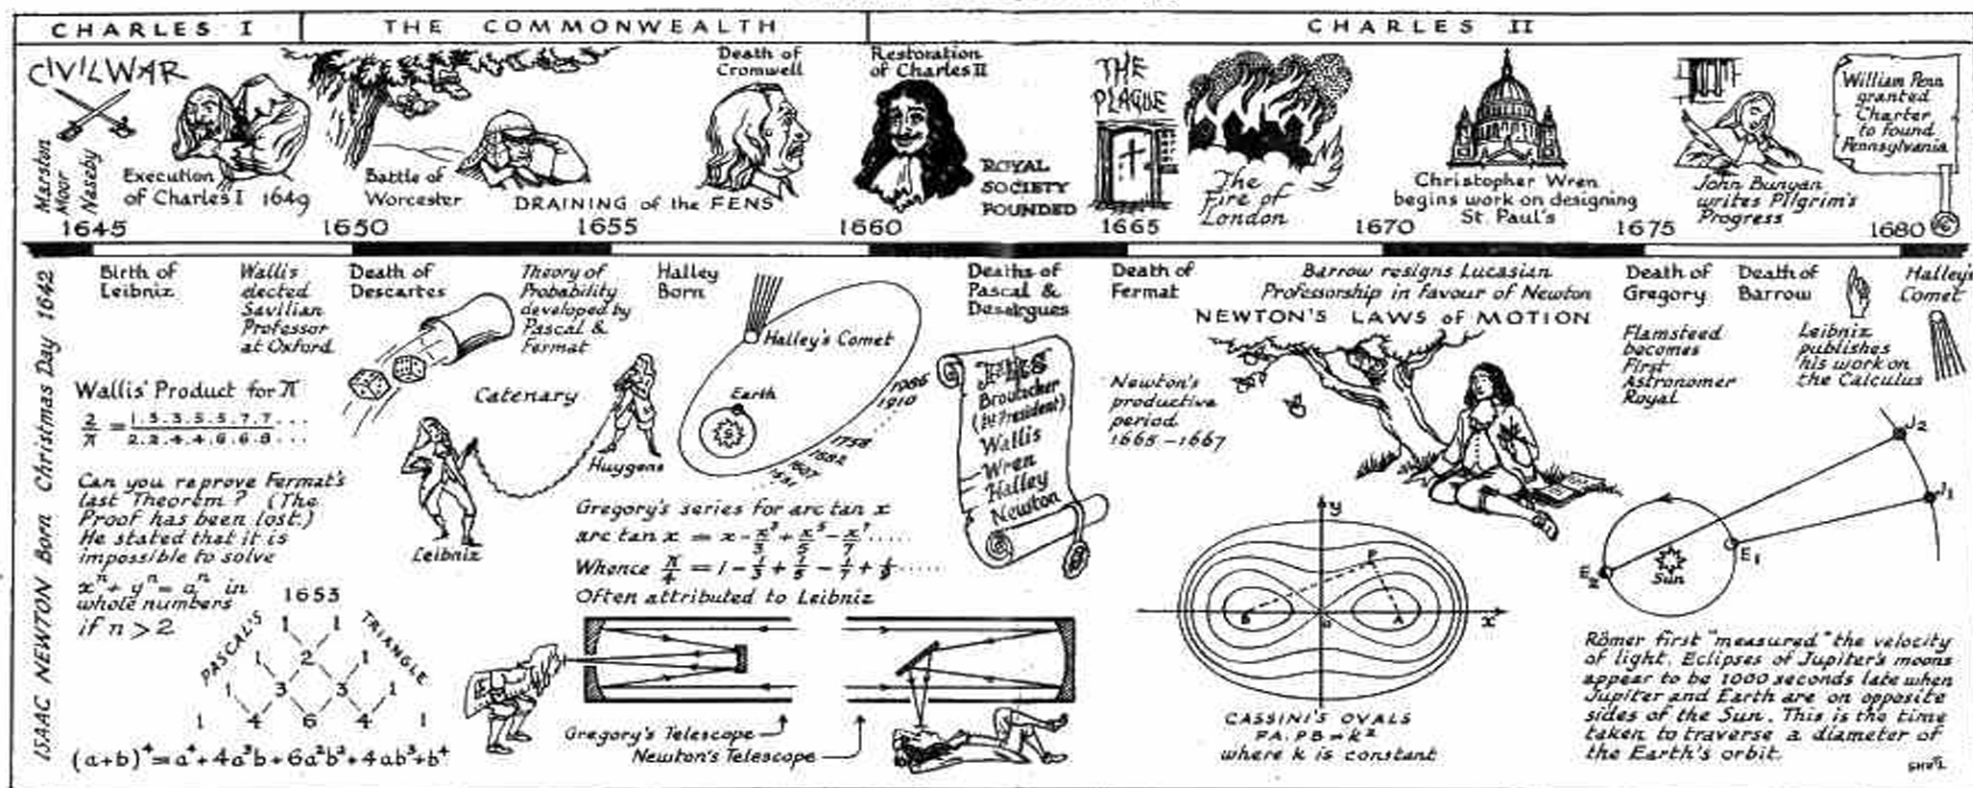 CHARLES I
THE COMMONWEALTH
CHARLES II
CIVIL WAR
Marston
Moor
Naseby
Execution
of Charles I 1649
Battle of
Worcester
DRAINING of the FENS
Death of
Cromwell
Restoration
of Charles II
ROYAL
SOCIETY
FOUNDED
THE
PLAGUE
The
Fire of
London
Christopher Wren
begins work on designing
St. Paul's
John Bunyan
writes Pilgrim's
Progress
William Penn
granted
Charter
to found
Pennsylvania
1645
1650
1655
1660
1665
1670
1675
1680
ISAAC NEWTON Born Christmas Day 1642
Birth of
Leibniz
Wallis
elected
Savilian
Professor
at Oxford
Death of
Descartes
Theory of
Probability
developed by
Pascal &
Fermat
Halley
Born
Deaths of
Pascal &
Desargues
Death of
Fermat
Barrow resigns Lucasian
Professorship in favour of Newton
NEWTON'S LAWS of MOTION
Death of
Gregory
Death of
Barrow
Halley's
Comet
Flamsteed
becomes
First
Astronomer
Royal
Leibniz
publishes
his work on
the Calculus
Wallis' Product for π
2/π = 1.3.3.5.5.7.7...
2.2.4.4.6.6.8...
Can you reprove Fermat's
last Theorem? (The
Proof has been lost.)
He stated that it is
impossible to solve
xⁿ + yⁿ = aⁿ in
whole numbers
if n > 2
1653
PASCAL'S
TRIANGLE
1 1
1 2 1
1 3 3 1
1 4 6 4 1
(a+b)⁴ = a⁴+4a³b+6a²b²+4ab³+b⁴
Catenary
Huygens
Leibniz
Halley's Comet
Earth
1986
1910
1758
1682
1607
1531
Gregory's series for arc tan x
arc tan x = x - x³/3 + x⁵/5 - x⁷/7 .....
Whence π/4 = 1 - 1/3 + 1/5 - 1/7 + 1/9 ......
Often attributed to Leibniz
Gregory's Telescope
Newton's Telescope
Brouncker
(1st President)
Wallis
Wren
Halley
Newton
Newton's
productive
period
1665-1667
y
P
B
A
x
CASSINI'S OVALS
PA.PB = k²
where k is constant
J₂
J₁
E₁
E₂
Sun
Römer first "measured" the velocity
of light. Eclipses of Jupiter's moons
appear to be 1000 seconds late when
Jupiter and Earth are on opposite
sides of the Sun. This is the time
taken to traverse a diameter of
the Earth's orbit.